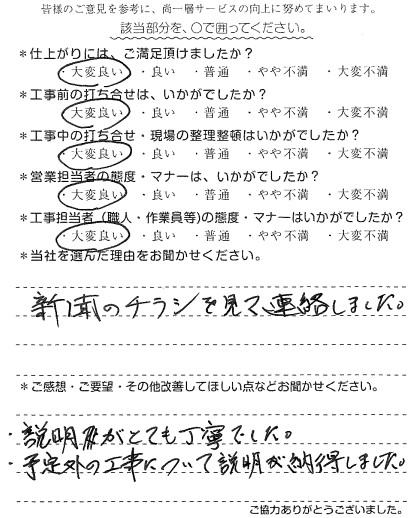 皆様のご意見を参考に、尚一層サービスの向上に努めてまいります。
該当部分を、〇で囲ってください。
＊仕上がりには、ご満足頂けましたか？
・大変良い ・良い ・普通 ・やや不満 ・大変不満
＊工事前の打ち合せは、いかがでしたか？
・大変良い ・良い ・普通 ・やや不満 ・大変不満
＊工事中の打ち合せ・現場の整理整頓はいかがでしたか？
・大変良い ・良い ・普通 ・やや不満 ・大変不満
＊営業担当者の態度・マナーは、いかがでしたか？
・大変良い ・良い ・普通 ・やや不満 ・大変不満
＊工事担当者（職人・作業員等)の態度・マナーはいかがでしたか？
・大変良い ・良い ・普通 ・やや不満 ・大変不満
＊当社を選んだ理由をお聞かせください。
新聞のチラシを見て、連絡しました。
＊ご感想・ご要望・その他改善してほしい点などお聞かせください。
・説明がとても丁寧でした。
・予定外の工事について説明が納得しました。
ご協力ありがとうございました。